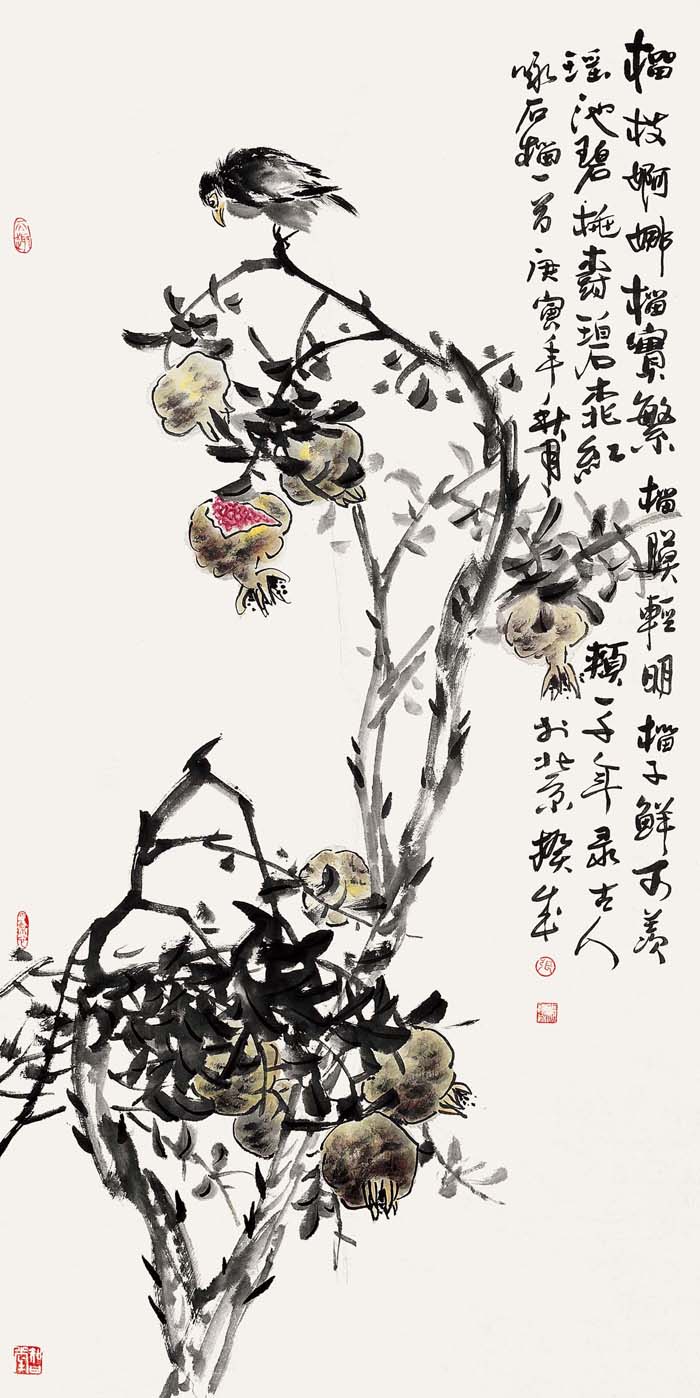 榴枝婀娜榴實繁榴膜輕明榴子鮮可羨
瑶池碧桃樹碧桃紅頰一千年录古人
咏石榴一首庚寅年秋月於北京
張